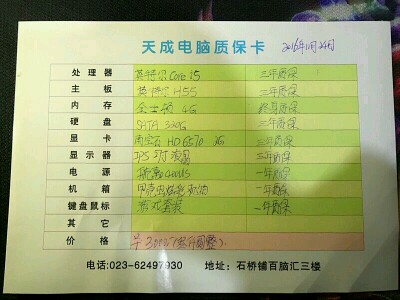 天成电脑质保卡 2015年11月24日
处理器 英特尔Core i5 三年质保
主板 英特尔H55 三年质保
内存 金士顿 4G 终身质保
硬盘 SATA 320G 三年质保
显卡 HD6570 2G 三年质保
显示器 IPS 液晶 三年质保
电源 一年质保
机箱 一年质保
键盘鼠标 游戏套装 一年质保
其它
价格 3000
电话:023-62497930 地址:石桥铺百脑汇三楼